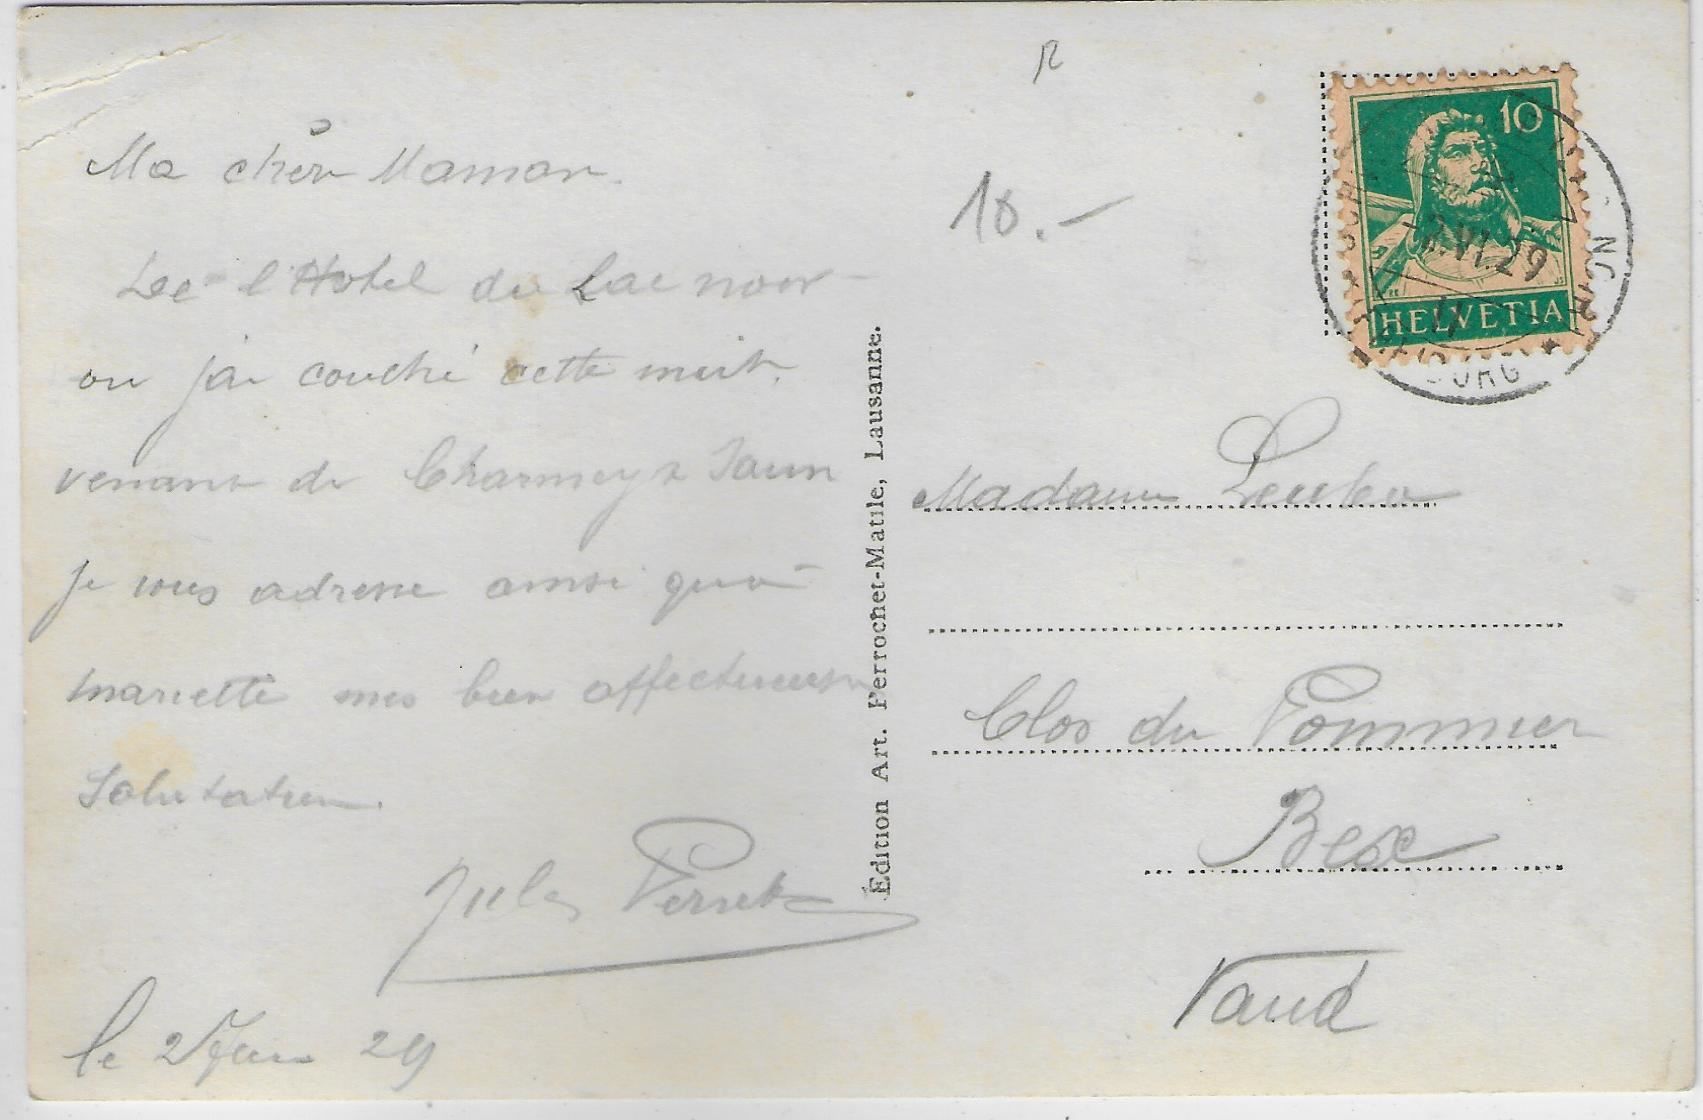 Ma chère Maman.
l'Hotel du Lac noir
ou j'ai couché cette nuit.
venant de Charmey & Jaun
je vous adresse ainsi qu'à
Mariette mes bien affectueuse
Salutation.
Jules Pernet
le 2 Juin 29
Edition Art. Perrochet-Matile, Lausanne.
10.-
10
HELVETIA
VI.29
BURG
Madame
Clos du Pommier
Bex
Vaud